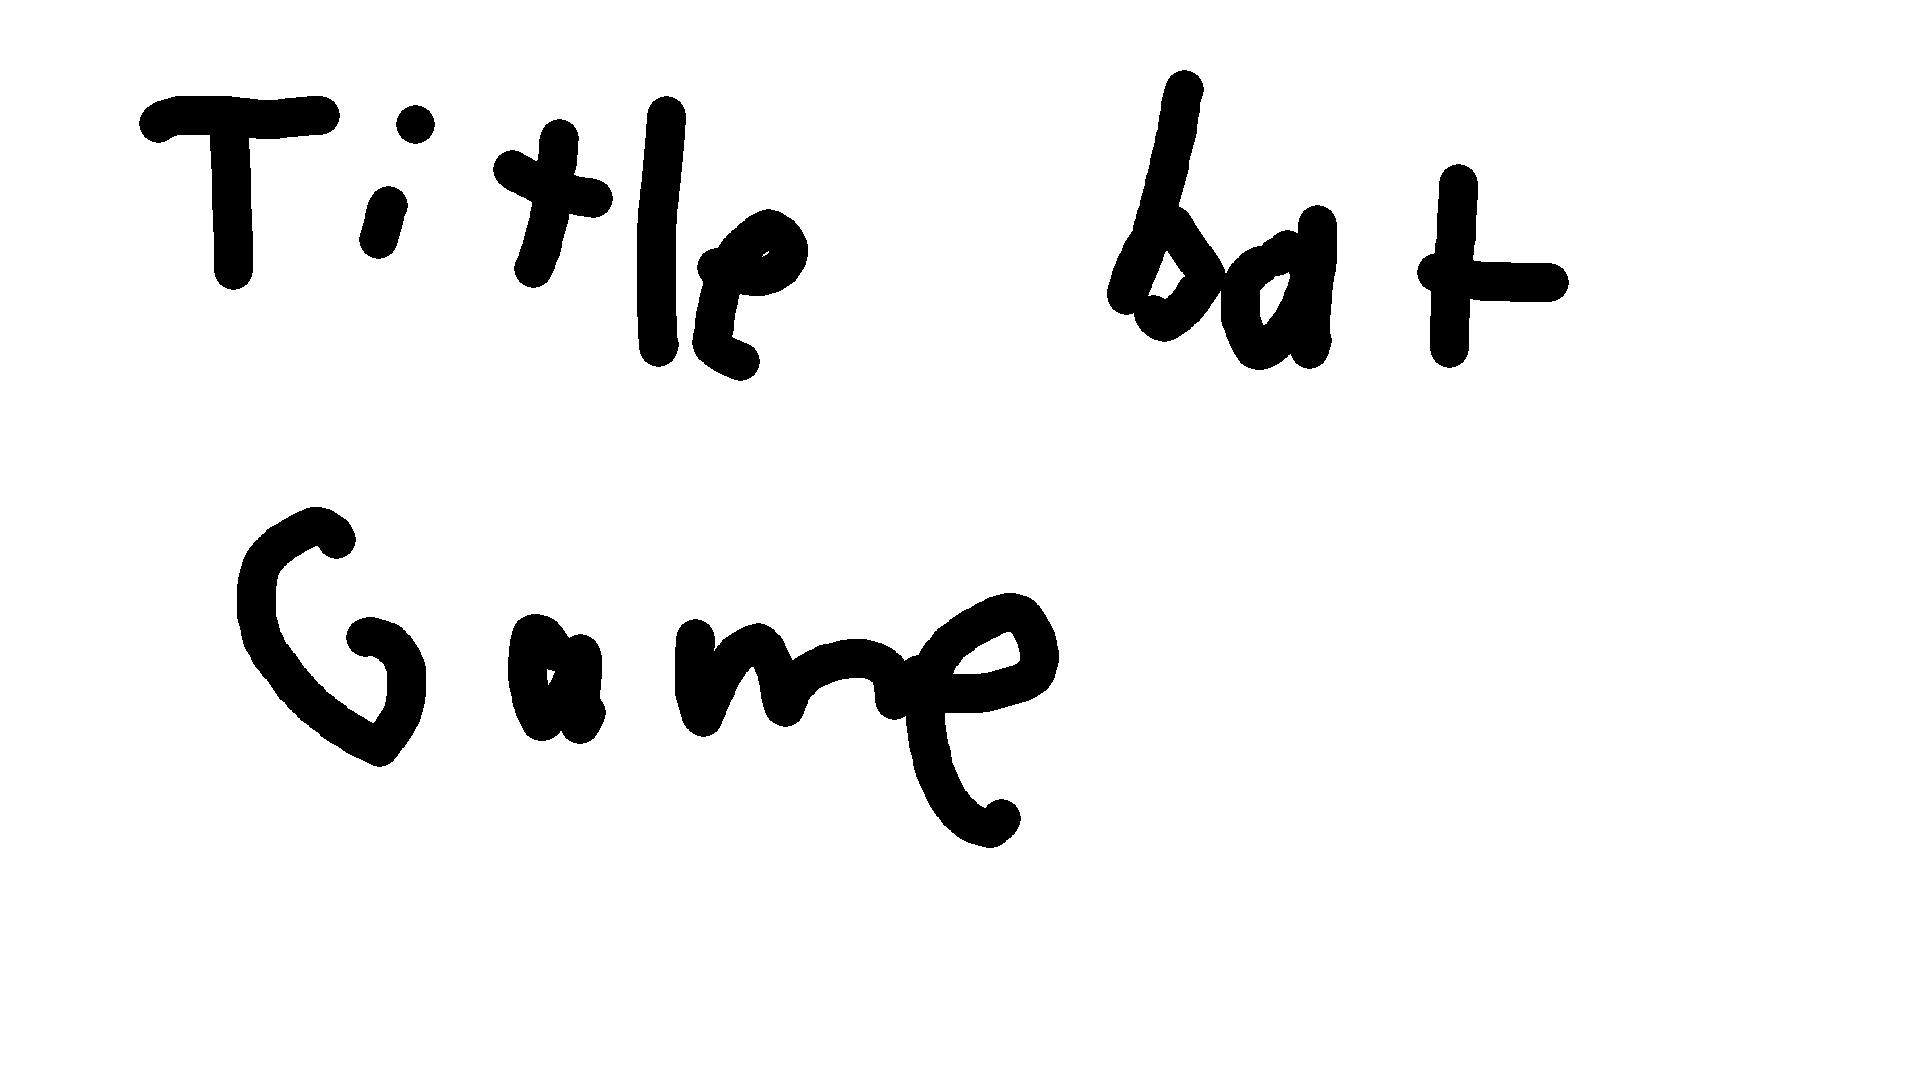 Title bat
Game